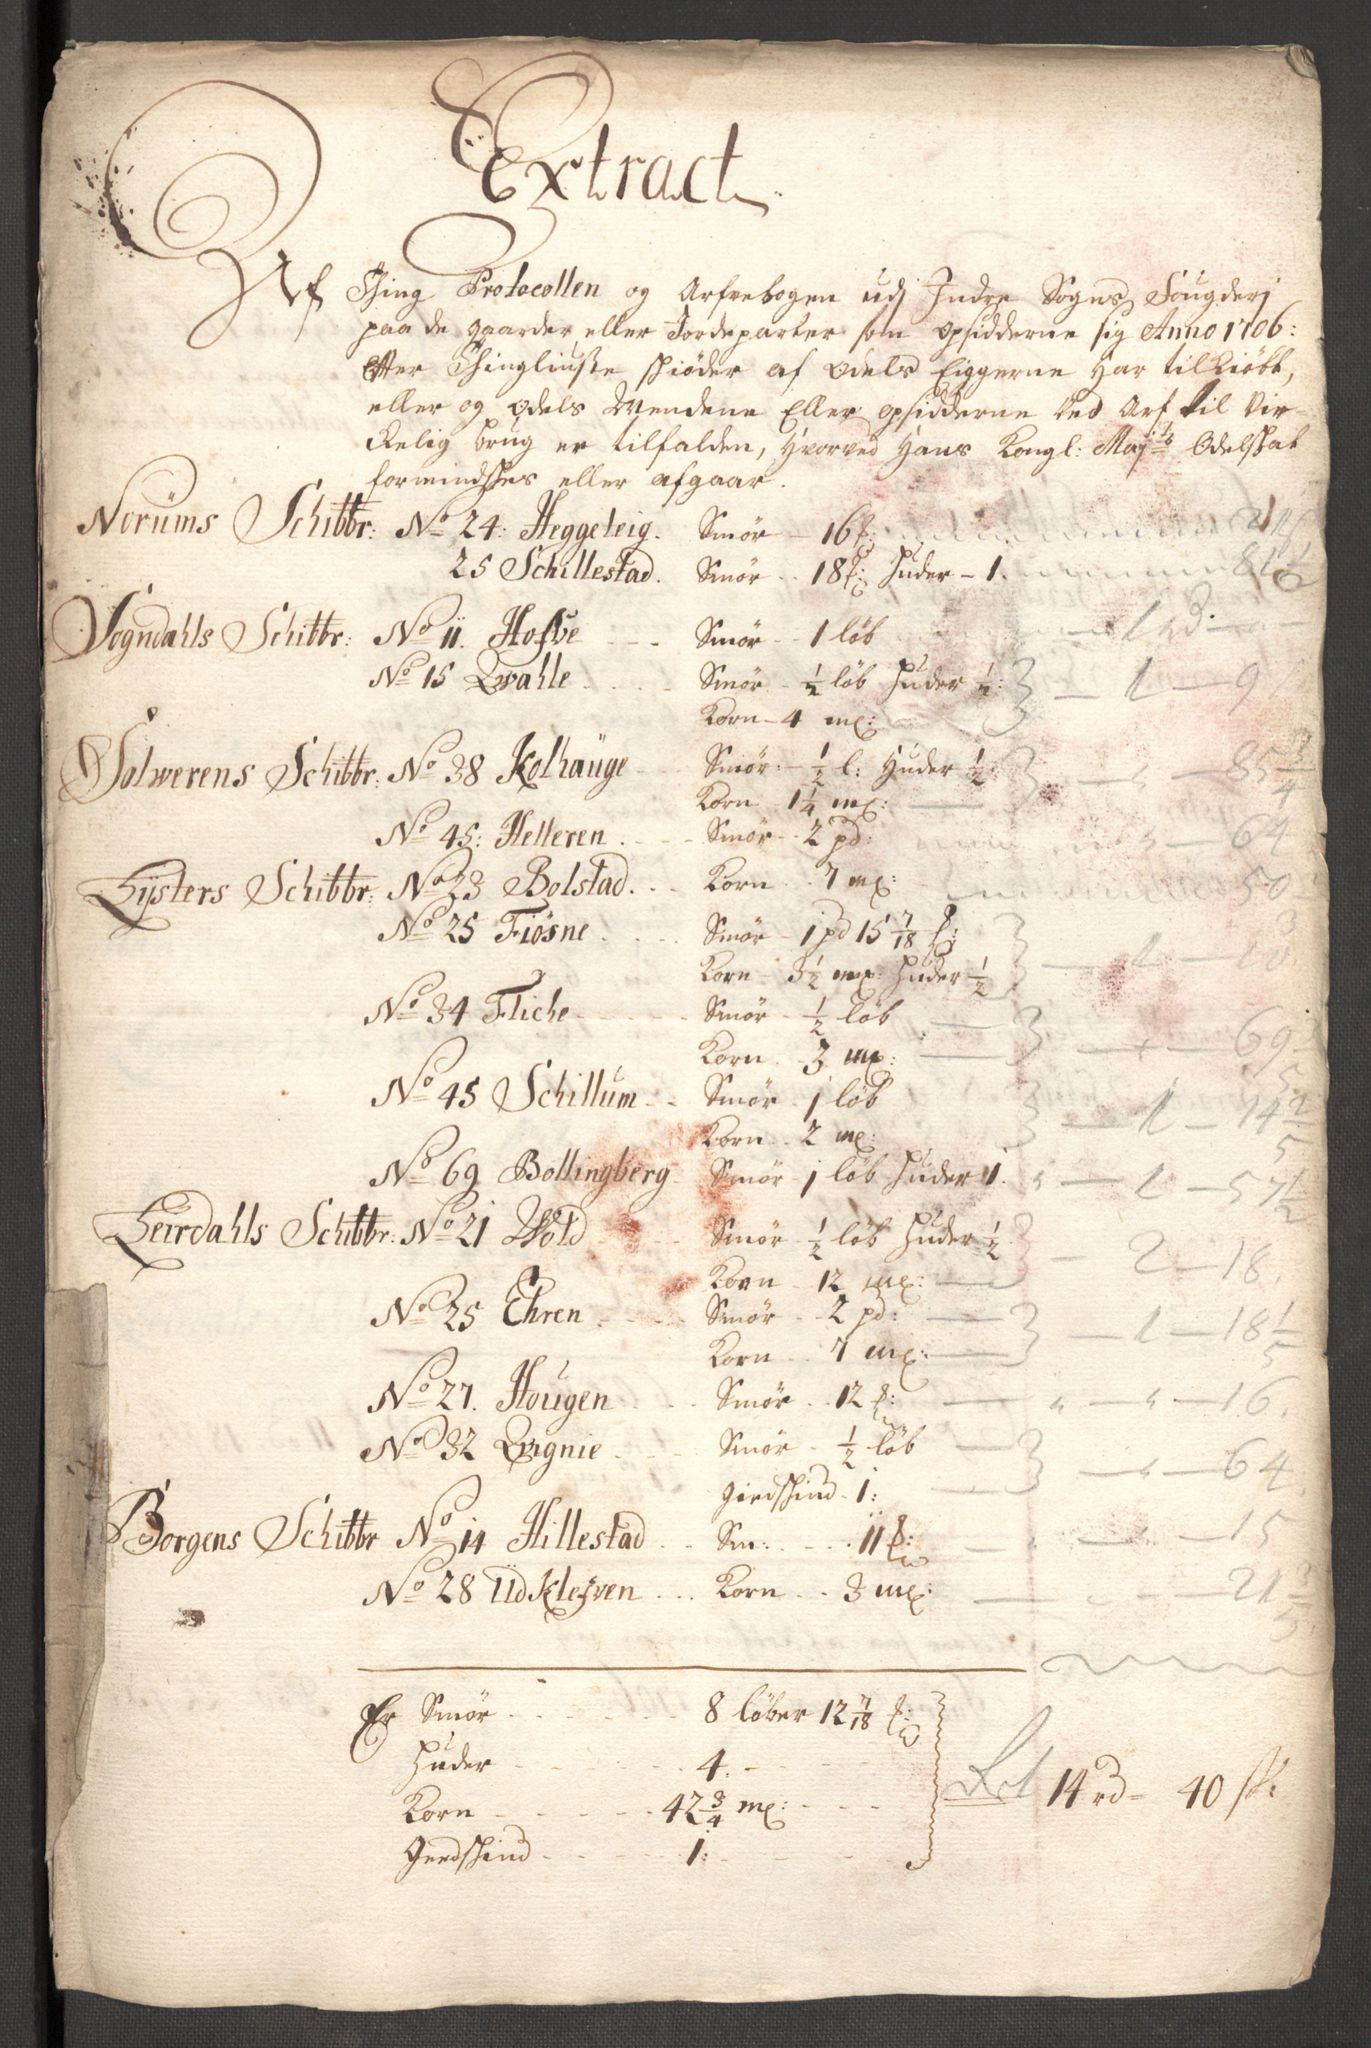 Extract
Af Thing Protocollen og Arfvebogen udj Indre Sogns Fougderj
paa de gaarder eller Jordeparter som opsidderne sig Anno 1706:
Efter Thingliuste skiøder af Odels Eiggerne har tilkiøbt,
eller og Odels Mendene Eller opsidderne ved Arf til vir-
kelig brug er tilfalden, hvorved Hans Kongl: Maj:ts Odelskat
formindskes eller afgaar.
Norums Schibbr: No 24: Heggeleig. Smør - 16 : 21
25 Schillestad. Smør .. 18 : huder - 1. 81 1/2
Sogndahls Schibbr: No 11. Hofve - - - Smør - 1 løb 1
No 15 Qvahle . . . . Smør - 1/2 løb huder 1/2: - 1 - 9
Korn - 4 mp:
Solwerens Schibbr: No 38 Kolhauge Smør: - 1/2 l: huder 1/2 - " - 85 3/4
Korn 1 1/4 mp:
No 45: Helleren . . . . Smør .. 2 pd: " - 64
Lysters Schibbr: No 23 Bolstad. . . Korn .. 7 mp: 50
No 25 Fiøsne . . . . Smør - 1 pd 15 7/18 : - 1 -
Korn - 3 1/2 mp: huder 1/2
No 34 Fliche - - - - Smør - 1/2 løb
Korn - 3 mp: - " - 69
No 45 Schillum - - Smør - 1 løb
Korn .. 2 mp: - 1 - 14 2/5
No 69 Bollingberg - Smør - 1 løb huder 1. " - 1 - 57 1/2
Leirdahls Schibbr: No 21 Wold Smør 1/2 løb huder 1/2 - 2 - 18.
Korn - 12 mp:
No 25 Ehren . . . . Smør .. 2 pd: - 1 - 18 1/5
Korn .. 7 mp:
No 27. Hougen . . . Smør .. 12 : " - " - 16.
No 32 Qvignie . . . Smør - 1/2 løb - " - 64.
Giedskind - 1:
Borgens Schibbr No 14 Hillestad . . Sm: . . . 11 : " - 15
No 28 Udklefven . . . Korn .. 3 mp: - 21 3/5
Er Smør . . . . . . 8 løber 12 7/18 :
Huder - - - - - 4. - - -
Korn - - - - - 42 3/4 mp: - - -
Giedskind - - - - 1: - - -
14 rd - 40 sk: